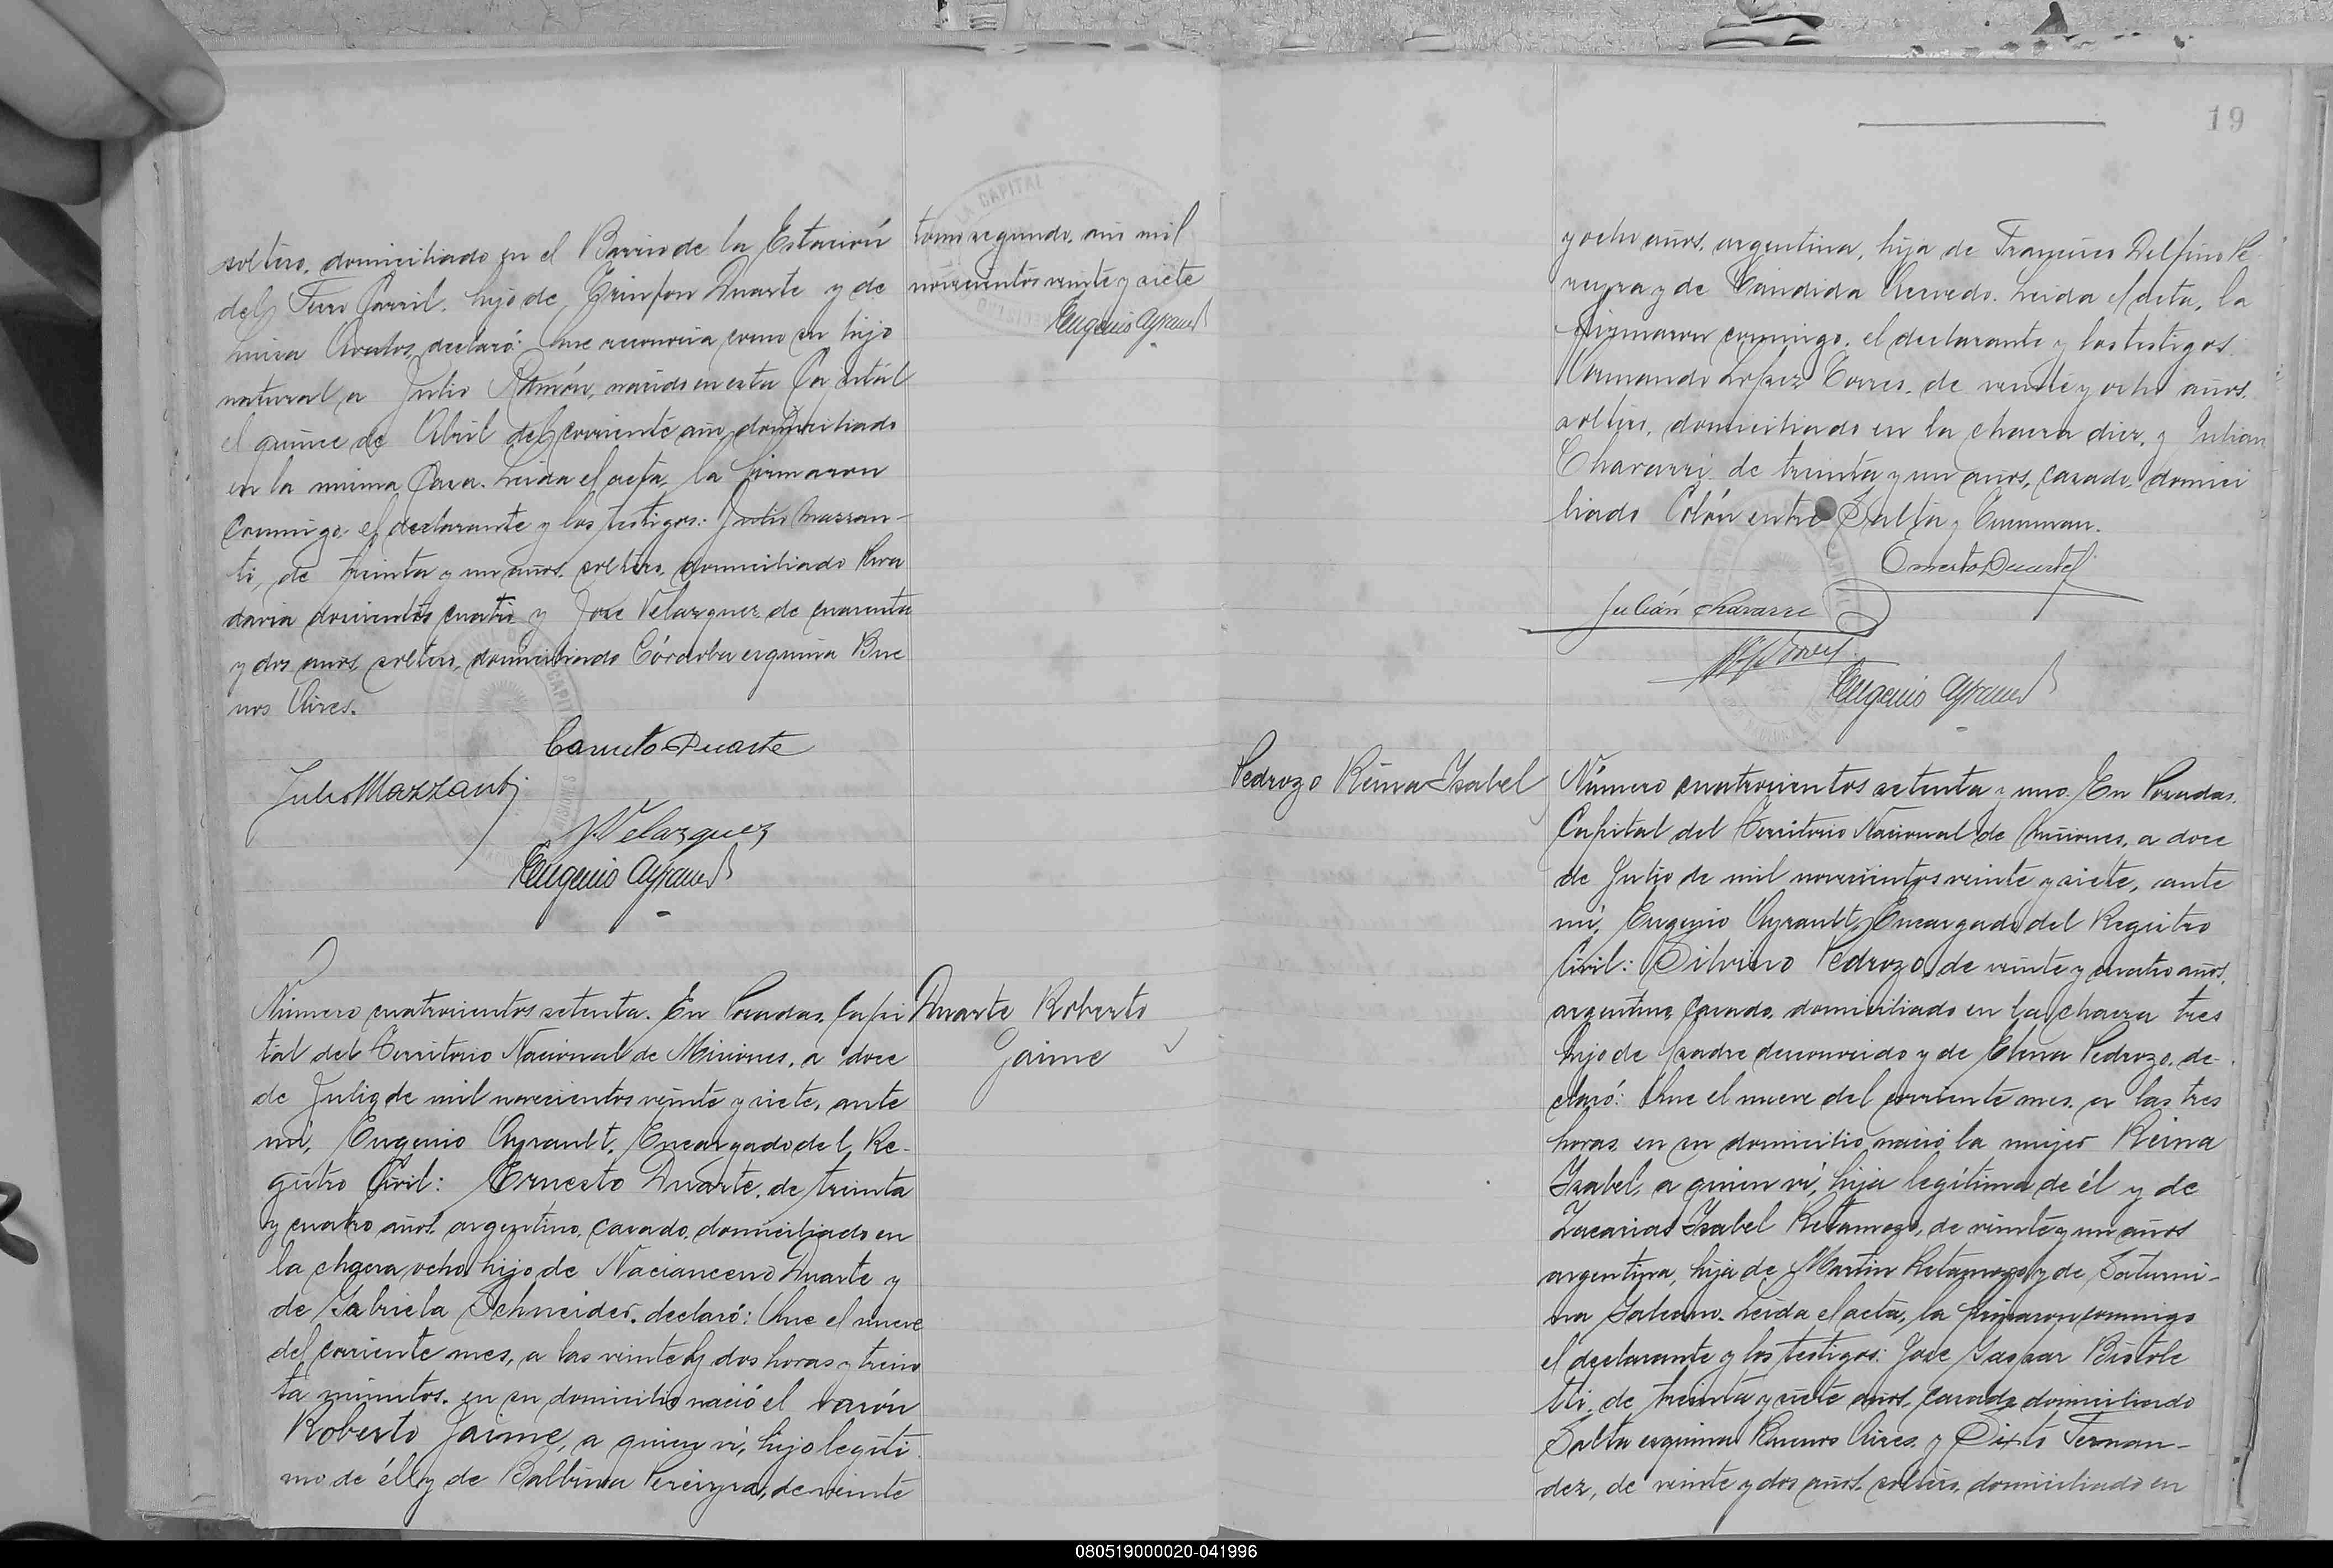 soltero, domiciliado en el Barrio de la Estación
del Ferro Carril, hijo de Trinfon Duarte y de
Luisa Avalos, declaró: Que reconocia como su hijo
natural a Julio Ramón, nacido en esta Capital
el quince de Abril del corriente año, domiciliado
en la misma Casa. Leida el acta, la firmaron
conmigo, el declarante y los testigos: Julio Mazzan-
ti, de treinta y un años, soltero, domiciliado Riva
davia doscientos cuatro y José Velazquez de cuarenta
y dos años, soltero, domiciliado Córdoba esquina Bue
nos Aires.
Canuto Duarte
Julio Mazzanti
J. Velazquez
Eugenio Ayrault
tomo segundo, año mil
novecientos veinte y siete
Eugenio Ayrault
Duarte Roberto
Jaime
Número cuatrocientos setenta. En Posadas, Capi
tal del Territorio Nacional de Misiones, a doce
de Julio de mil novecientos veinte y siete, ante
mi, Eugenio Ayrault, Encargado del Re-
gistro Civil: Ernesto Duarte, de treinta
y cuatro años, argentino, casado, domiciliado en
la chacra ocho, hijo de Nacianceno Duarte y
de Gabriela Schneider, declaró: Que el nueve
del corriente mes, a las veinte y dos horas y trein
ta minutos, en su domicilio nació el varón
Roberto Jaime, a quien vi, hijo legíti
mo de él y de Balbina Pereyra, de veinte
19
y ocho años, argentina, hija de Francisco Delfino Pe
reyra y de Cándida Acevedo. Leida el acta, la
firmaron conmigo, el declarante y los testigos:
Armando López Torres, de veinte y ocho años,
soltero, domiciliado en la chacra diez, y Julian
Chavarri de treinta y un años, casado, domici
liado Colón entre Salta y Tucuman.
Ernesto Duarte
Julián Chavarri
Eugenio Ayrault
Pedrozo Reina Isabel
Número cuatrocientos setenta y uno. En Posadas,
Capital del Territorio Nacional de Misiones, a doce
de Julio de mil novecientos veinte y siete, ante
mi, Eugenio Ayrault, Encargado del Registro
Civil: Silvino Pedrozo, de veinte y cuatro años,
argentino, casado, domiciliado en la chacra tres
hijo de padre desconocido y de Elena Pedrozo, de-
claró: Que el nueve del corriente mes, a las tres
horas, en su domicilio nació la mujer Reina
Isabel, a quien vi, hija legítima de él y de
Zacarias Isabel Retamozo, de veinte y un años
argentina, hija de Martin Retamozo y de Saturni-
na Galeano. Leida el acta, la firmaron conmigo
el declarante y los testigos: José Gaspar Bistole
tti, de treinta y siete años, casado, domiciliado
Salta esquina Buenos Aires, y Sixto Fernan-
dez, de veinte y dos años, soltero, domiciliado en
080519000020-041996